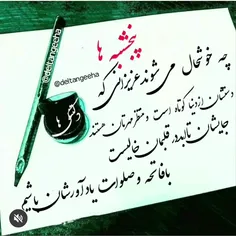 پنجشنبه ها
@deltangeeha
@deltangeeha
چه خوشحال می شوند عزیزانی که
دستشان از دنیا کوتاه است و منتظر مهرتان هستند
جایشان تا ابد در قلبمان خالیست
با فاتحه و صلوات یادآورشان باشیم